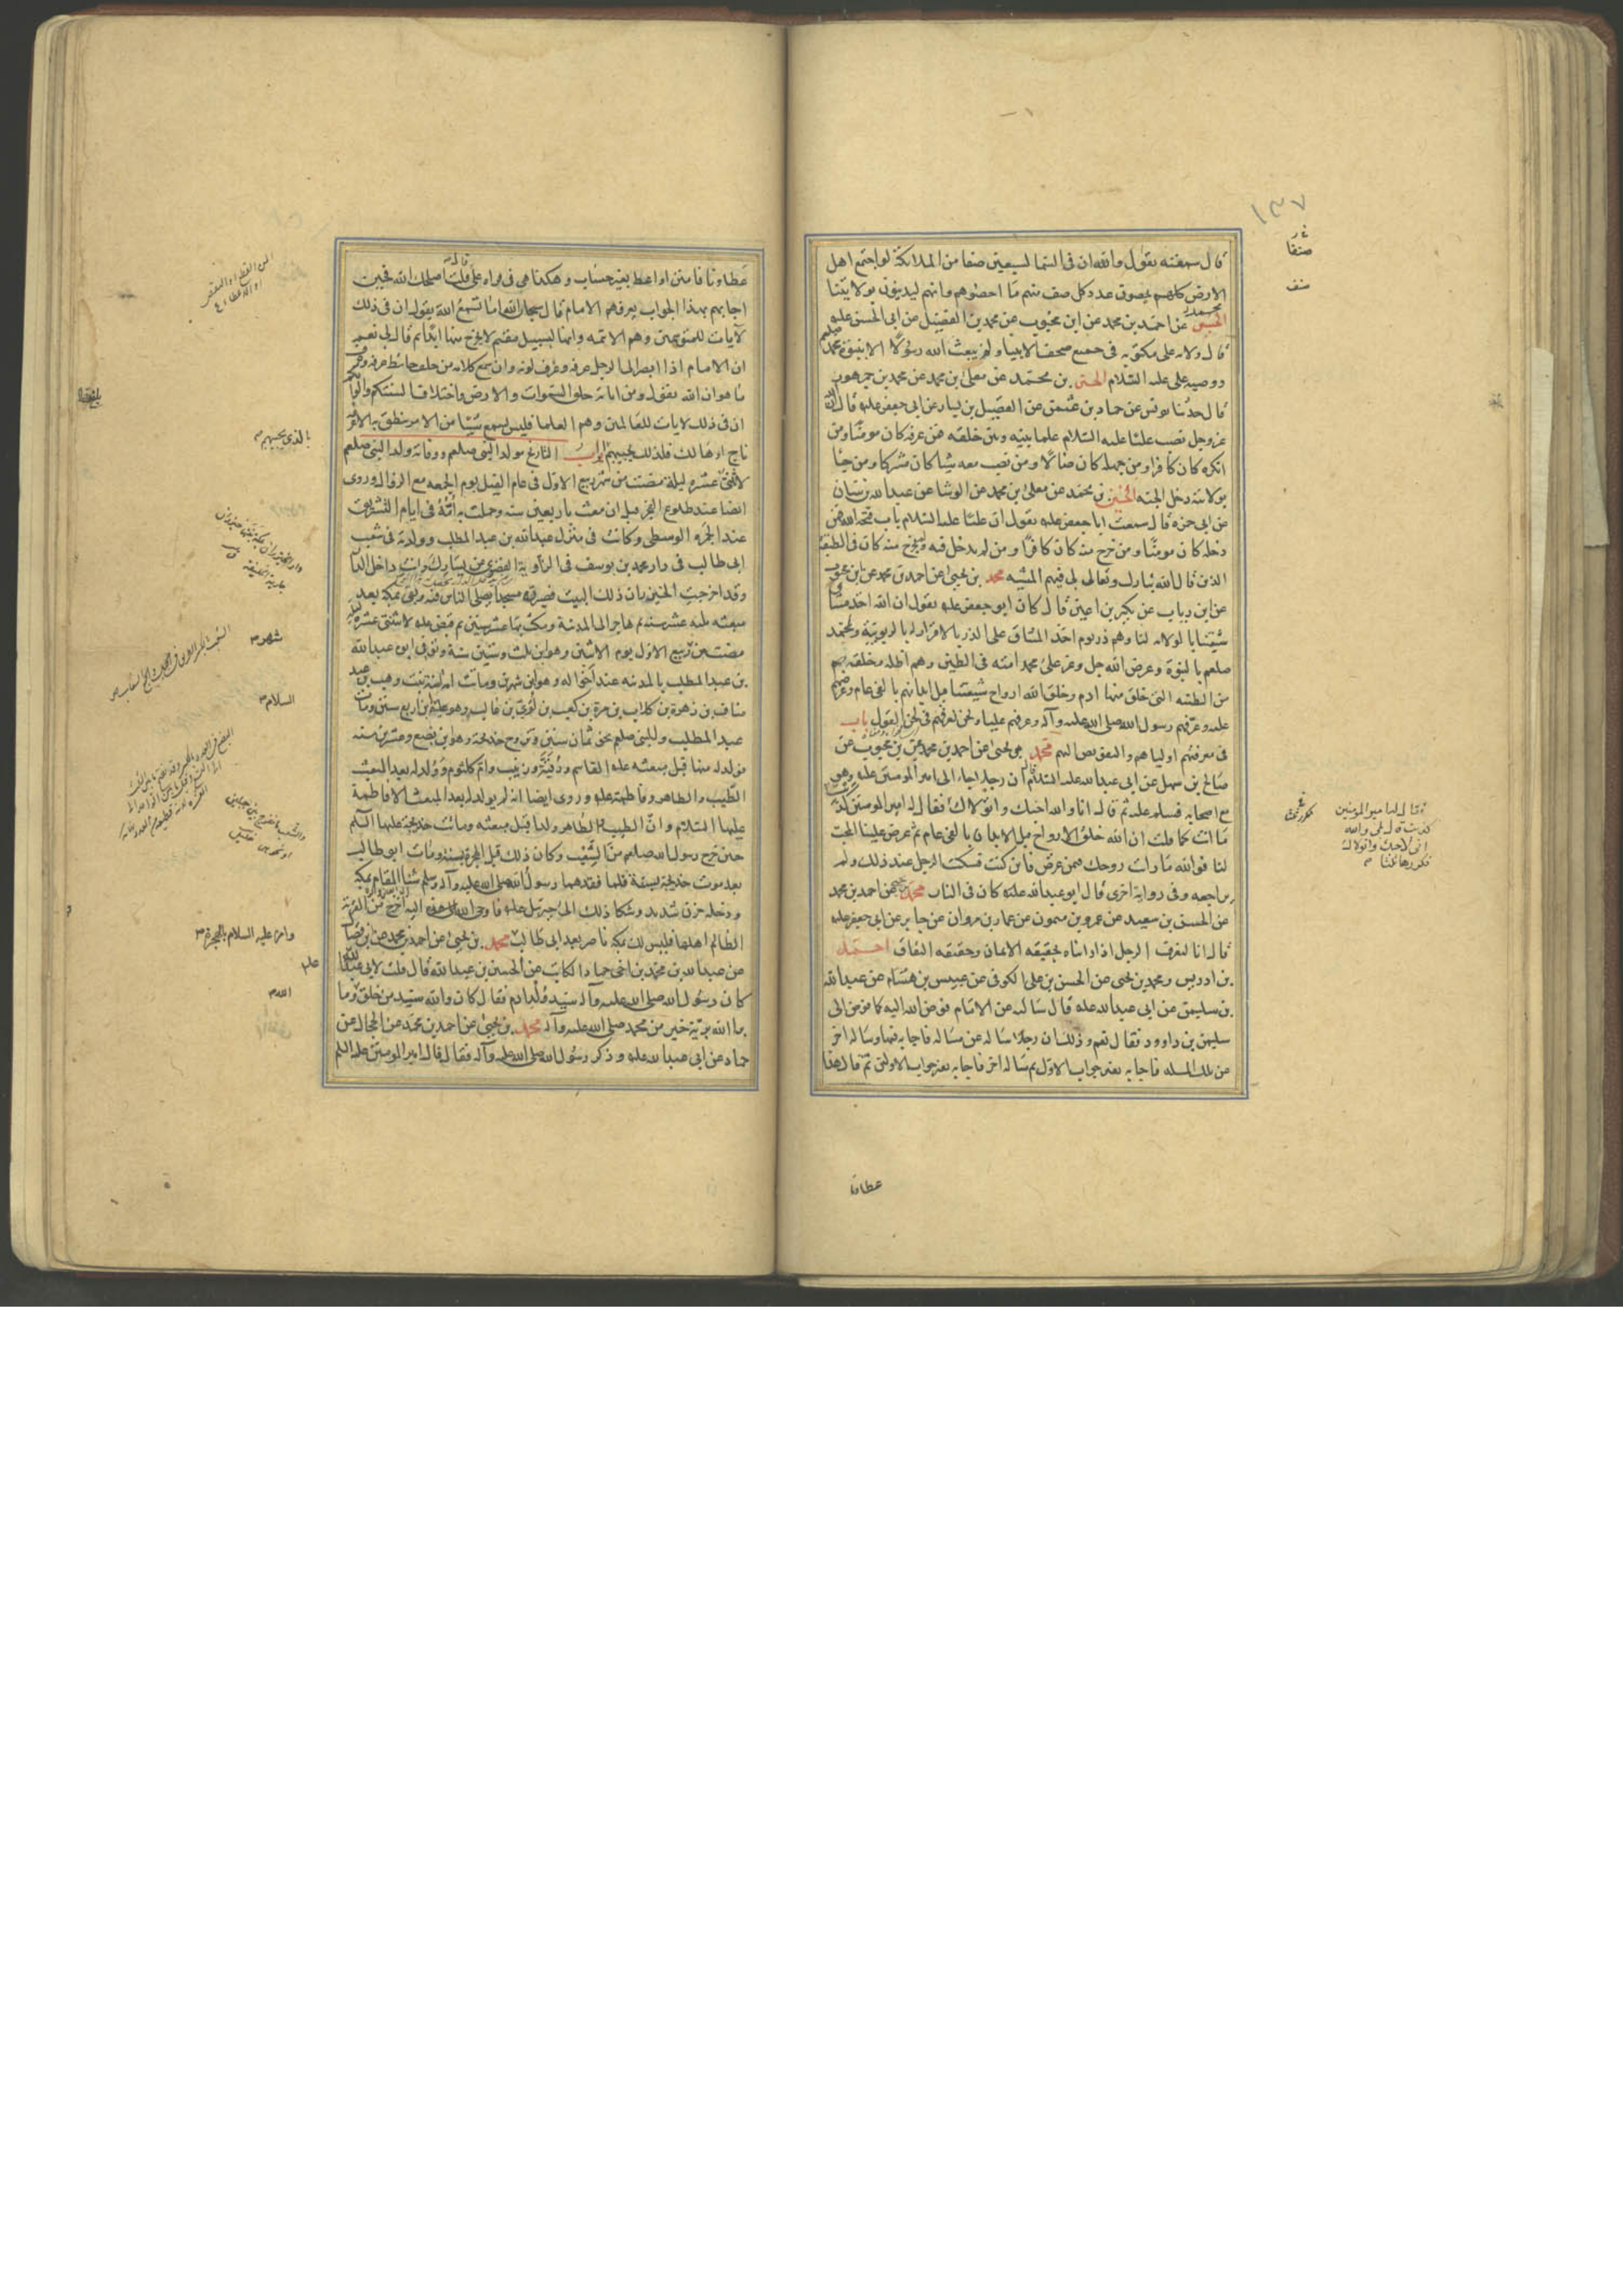 قال سمعته يقول والله ان في السما لسبعين صفا من الملائكة لو اجتمع اهل
الارض كلهم يحصون عدد كل صف منهم ما احصوهم وانهم ليدينون بولايتنا
محمد عن احمد بن محمد عن ابن محبوب عن محمد بن الفضيل عن ابي الحسن عليه
قال ولاية على مكتوبة في جميع صحف الانبيا ولم يبعث الله رسولا الا بنبوة محمد صلعم
ووصيه على عليه السلام الحسين بن محمد عن معلى بن محمد عن محمد بن جمهور
قال حدثنا يونس عن حماد بن عثمن عن الفضيل بن يسار عن ابي جعفر عليه قال ان الله
عز وجل نصب عليا عليه السلام علما بينه وبين خلقه فمن عرفه كان مومنا ومن
انكره كان كافرا ومن جهله كان ضالا ومن نصب معه شيا كان مشركا ومن جا
بولايته دخل الجنه الحسين بن محمد عن معلى بن محمد عن الوشا عن عبدالله بن سنان
عن ابي حمزه قال سمعت ابا جعفر عليه يقول ان عليا عليه السلام باب فتحه الله فمن
دخله كان مومنا ومن خرج منه كان كافرا ومن لم يدخل فيه ولم يخرج منه كان في الطبقة
الذين قال الله تبارك وتعالى لي فيهم المشيه محمد بن يحيى عن احمد بن محمد عن ابن محبوب
عن ابن رياب عن بكير بن اعين قال كان ابو جعفر عليه يقول ان الله اخذ ميثاق
شيعتنا بالولاية لنا وهم ذر يوم اخذ الميثاق على الذر بالاقرار له بالربوبية ولمحمد
صلعم بالنبوة وعرض الله جل وعز على محمد امته في الطين وهم اظله وخلقهم
من الطينه التي خلق منها ادم وخلق الله ارواح شيعتنا قبل ابدانهم بالفي عام وعرضهم
عليه وعرفهم رسول الله صلى الله عليه وآله وعرفهم عليا ونحن نعرفهم في لحن القول باب
في معرفتهم اوليا هم والتفويض اليهم محمد بن يحيى عن احمد بن محمد عن ابن محبوب عن
صالح بن سهل عن ابي عبدالله عليه السلام ان رجلا جاء الى امير المومنين عليه وهو
مع اصحابه فسلم عليه ثم قال له انا والله احبك واتولاك فقال له امير المومنين كذبت
ما انت كما قلت ان الله خلق الارواح قبل الابدان بالفي عام ثم عرض علينا المحب
لنا فوالله ما رايت روحك فيمن عرض فاين كنت فسكت الرجل عند ذلك ولم
يراجعه وفي رواية اخرى قال ابو عبدالله عليه كان في النار محمد بن يحيى عن احمد بن محمد
عن الحسين بن سعيد عن عمرو بن ميمون عن عمار بن مروان عن جابر عن ابي جعفر عليه
قال انا لنعرف الرجل اذا رايناه بحقيقه الايمان وحقيقه النفاق احمد
بن ادريس ومحمد بن يحيى عن الحسن بن على الكوفي عن عبيس بن هشام عن عبدالله
بن سليمن عن ابي عبدالله عليه قال سالته عن الامام فوض الله اليه كما فوض الى
سليمن بن داوود فقال نعم وذلك ان رجلا ساله عن مسالة فاجابه فيها وساله اخر
عن تلك المسله فاجابه بغير جواب الاول ثم ساله اخر فاجابه بغير جواب الاولين ثم قال هذا
عطاونا
١٣٧
صنفا
صنف
فقال له امير المومنين
كذبت قال بلى والله
اني لاحبك واتولاك
فكررها ثلثا
عطاونا فامنن او اعط بغير حساب وهكذا هي في قراه على قال قلت اصلحك الله فحين
اجابهم بهذا الجواب يعرفهم الامام قال سبحان الله اما تسمع الله يقول ان في ذلك
لآيات للمتوسمين وهم الائمه وانها لبسبيل مقيم لا يخرج منها ابدا ثم قال لي نعم
ان الامام اذا ابصر الى الرجل عرفه وعرف لونه وان سمع كلامه من خلف حائط عرفه وعرف
ما هو ان الله يقول ومن اياته خلق السموات والارض واختلاف السنتكم والوانكم
ان في ذلك لايات للعالمين وهم العلما فليس يسمع شيئا من الامر ينطق به الا عرفه
ناج او هالك فلذلك يجيبهم ابواب التاريخ مولد النبي صلعم ووفاته ولد النبي صلعم
لاثنتي عشره ليلة مضت من شهر ربيع الاول في عام الفيل يوم الجمعه مع الزوال وروى
ايضا عند طلوع الفجر قبل ان يبعث باربعين سنه وحملت به امه في ايام التشريق
عند الجمره الوسطى وكانت في منزل عبدالله بن عبد المطلب وولدته في شعب
ابي طالب في دار محمد بن يوسف في الزاوية القصوى عن يسارك وانت داخل الدار
وقد اخرجت الخيزران ذلك البيت فصيرته مسجدا يصلى الناس فيه وبقى بمكه بعد
مبعثه ثلثه عشر سنه ثم هاجر الى المدينة ومكث بها عشر سنين ثم قبض عليه لاثنتي عشره ليلة
مضت من ربيع الاول يوم الاثنين وهو ابن ثلث وستين سنة وتوفي ابوه عبدالله
بن عبد المطلب بالمدينه عند اخواله وهو ابن شهرين وماتت امه امنة بنت وهب بن عبد
مناف بن زهرة بن كلاب بن مرة بن كعب بن لؤي بن غالب وهو عليه ابن اربع سنين ومات
عبد المطلب وللنبي صلعم نحو ثمان سنين وتزوج خديجة وهو ابن بضع وعشرين سنه
فولد له منها قبل مبعثه عليه القاسم ورقية وزينب وام كلثوم وولد له بعد المبعث
الطيب والطاهر وفاطمة عليه وروى ايضا انه لم يولد له بعد المبعث الا فاطمة
عليها السلام وان الطيب والطاهر ولدا قبل مبعثه وماتت خديجة عليها السلم
حين خرج رسول الله صلعم من الشعب وكان ذلك قبل الهجرة بسنة ومات ابو طالب
بعد موت خديجة بسنة فلما فقدهما رسول الله صلى الله عليه وآله وسلم شنا المقام بمكه
ودخله حزن شديد وشكا ذلك الى جبرئيل عليه فاوحى الله اليه اخرج من القرية
الظالم اهلها فليس لك بمكه ناصر بعد ابي طالب محمد بن يحيى عن احمد بن محمد عن ابن فضال
عن عبدالله بن محمد بن اخي حماد الكاتب عن الحسين بن عبدالله قال قلت لابي عبدالله
كان رسول الله صلى الله عليه وآله سيد ولد ادم فقال كان والله سيد من خلق وما
برا الله برية خير من محمد صلى الله عليه وآله محمد بن يحيى عن احمد بن محمد عن الحجال عن
حماد عن ابي عبدالله عليه وذكر رسول الله صلى الله عليه وآله فقال قال امير المومنين عليه السلم
بالذي يجيبهم
شهر
السلام
وامره عليه السلام بالهجرة
عليه
الله